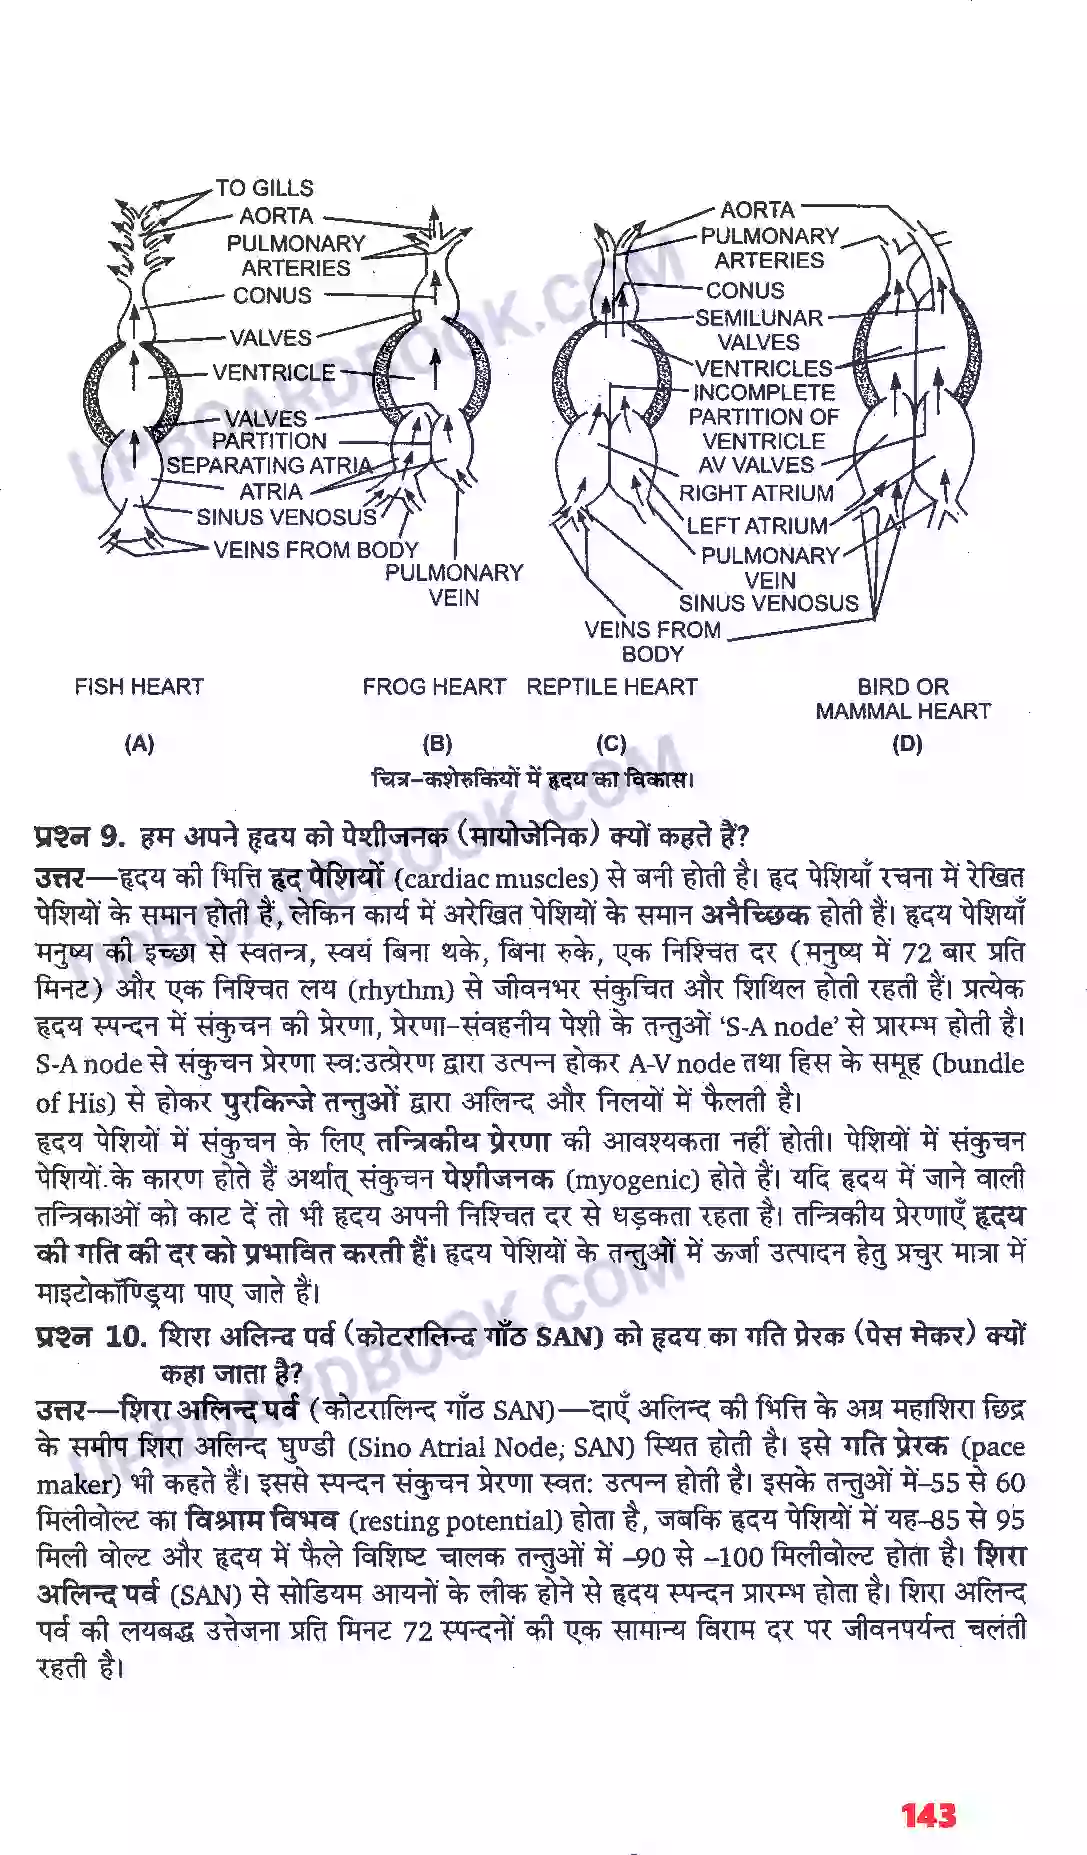 TO GILLS
AORTA
PULMONARY
ARTERIES
CONUS
VALVES
VENTRICLE
VALVES
PARTITION
SEPARATING ATRIA
ATRIA
SINUS VENOSUS
VEINS FROM BODY
PULMONARY
VEIN
AORTA
PULMONARY
ARTERIES
CONUS
SEMILUNAR
VALVES
VENTRICLES
INCOMPLETE
PARTITION OF
VENTRICLE
AV VALVES
RIGHT ATRIUM
LEFT ATRIUM
PULMONARY
VEIN
SINUS VENOSUS
VEINS FROM
BODY
FISH HEART
FROG HEART
REPTILE HEART
BIRD OR
MAMMAL HEART
(A)
(B)
(C)
(D)
चित्र–कशेरुकियों में हृदय का विकास।
प्रश्न 9. हम अपने हृदय को पेशीजनक (मायोजेनिक) क्यों कहते हैं?
उत्तर—हृदय की भित्ति हृद पेशियों (cardiac muscles) से बनी होती है। हृद पेशियाँ रचना में रेखित
पेशियों के समान होती हैं, लेकिन कार्य में अरेखित पेशियों के समान अनैच्छिक होती हैं। हृदय पेशियाँ
मनुष्य की इच्छा से स्वतन्त्र, स्वयं बिना थके, बिना रुके, एक निश्चित दर (मनुष्य में 72 बार प्रति
मिनट) और एक निश्चित लय (rhythm) से जीवनभर संकुचित और शिथिल होती रहती हैं। प्रत्येक
हृदय स्पन्दन में संकुचन की प्रेरणा, प्रेरणा–संवहनीय पेशी के तन्तुओं ‘S-A node’ से प्रारम्भ होती है।
S-A node से संकुचन प्रेरणा स्व:उत्प्रेरण द्वारा उत्पन्न होकर A-V node तथा हिस के समूह (bundle
of His) से होकर पुरकिन्जे तन्तुओं द्वारा अलिन्द और निलयों में फैलती है।
हृदय पेशियों में संकुचन के लिए तन्त्रिकीय प्रेरणा की आवश्यकता नहीं होती। पेशियों में संकुचन
पेशियों के कारण होते हैं अर्थात् संकुचन पेशीजनक (myogenic) होते हैं। यदि हृदय में जाने वाली
तन्त्रिकाओं को काट दें तो भी हृदय अपनी निश्चित दर से धड़कता रहता है। तन्त्रिकीय प्रेरणाएँ हृदय
की गति की दर को प्रभावित करती हैं। हृदय पेशियों के तन्तुओं में ऊर्जा उत्पादन हेतु प्रचुर मात्रा में
माइटोकॉण्ड्रिया पाए जाते हैं।
प्रश्न 10. शिरा अलिन्द पर्व (कोटरालिन्द गाँठ SAN) को हृदय का गति प्रेरक (पेस मेकर) क्यों
कहा जाता है?
उत्तर—शिरा अलिन्द पर्व (कोटरालिन्द गाँठ SAN)—दाएँ अलिन्द की भित्ति के अग्र महाशिरा छिद्र
के समीप शिरा अलिन्द घुण्डी (Sino Atrial Node, SAN) स्थित होती है। इसे गति प्रेरक (pace
maker) भी कहते हैं। इससे स्पन्दन संकुचन प्रेरणा स्वत: उत्पन्न होती है। इसके तन्तुओं में–55 से 60
मिलीवोल्ट का विश्राम विभव (resting potential) होता है, जबकि हृदय पेशियों में यह–85 से 95
मिली वोल्ट और हृदय में फैले विशिष्ट चालक तन्तुओं में –90 से –100 मिलीवोल्ट होता है। शिरा
अलिन्द पर्व (SAN) से सोडियम आयनों के लीक होने से हृदय स्पन्दन प्रारम्भ होता है। शिरा अलिन्द
पर्व की लयबद्ध उत्तेजना प्रति मिनट 72 स्पन्दनों की एक सामान्य विराम दर पर जीवनपर्यन्त चलती
रहती है।
143
UPBOARDBOOK.COM
UPBOARDBOOK.COM
UPBOARDBOOK.COM